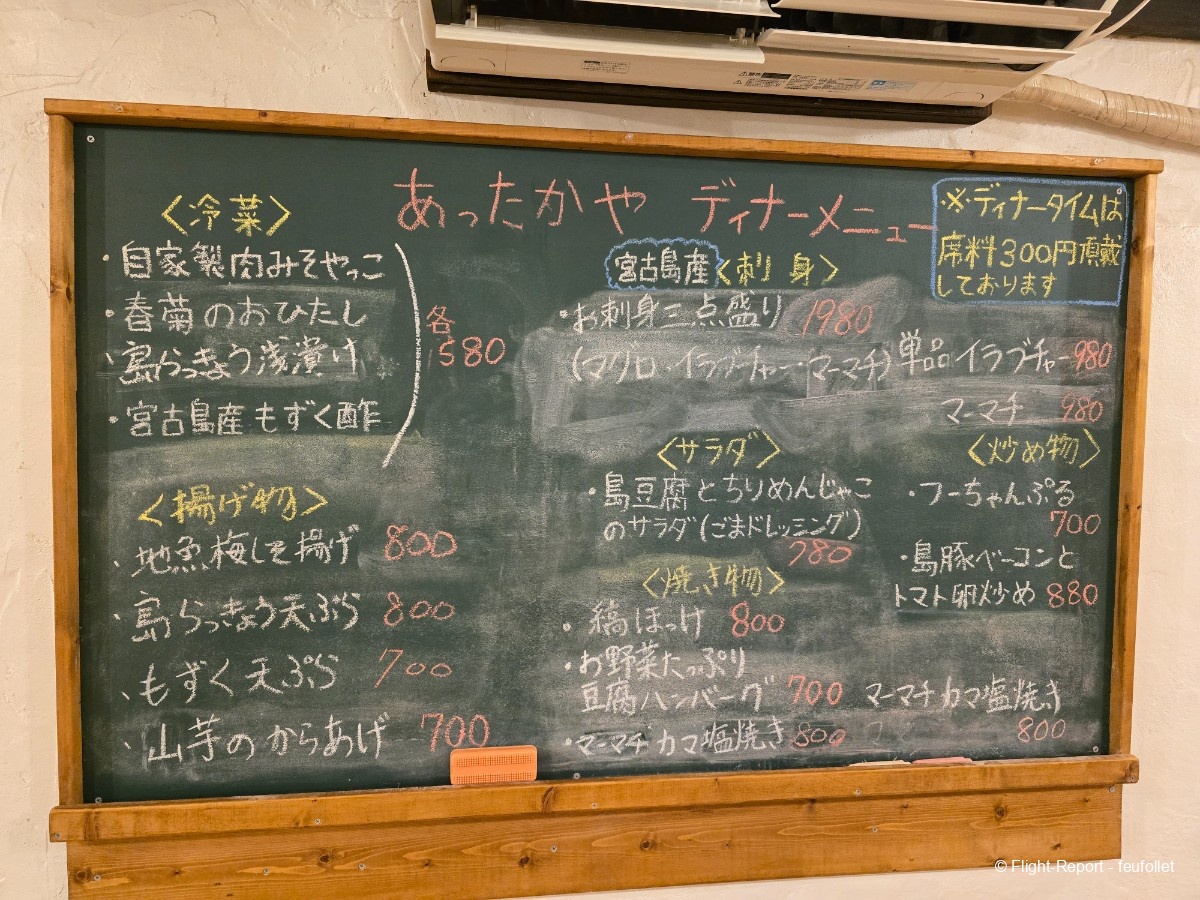 あったかや ディナーメニュー
※ディナータイムは
席料300円頂戴
しております
<冷菜>
・自家製肉みそやっこ
・春菊のおひたし
・島らっきょう浅漬け
・宮古島産もずく酢
各
580
<揚げ物>
・地魚梅しそ揚げ 800
・島らっきょう天ぷら 800
・もずく天ぷら 700
・山芋のからあげ 700
宮古島産<刺り身>
・お刺身三点盛り 1980
(マグロ・イラブチャー・マーマチ) 単品 イラブチャー980
マーマチ 980
<サラダ>
・島豆腐とちりめんじゃこ
のサラダ(ごまドレッシング)
780
<焼き物>
・縞ほっけ 800
・お野菜たっぷり
豆腐ハンバーグ 700
・マーマチカマ塩焼き 800
<炒め物>
・フーちゃんぷる
700
・島豚ベーコンと
トマト卵炒め 880
マーマチカマ塩焼き
800
© Flight-Report - feufollet